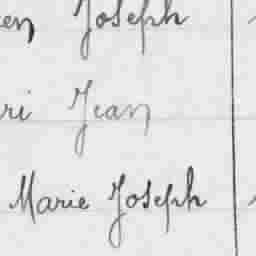 en Joseph
ri Jean
Marie Joseph